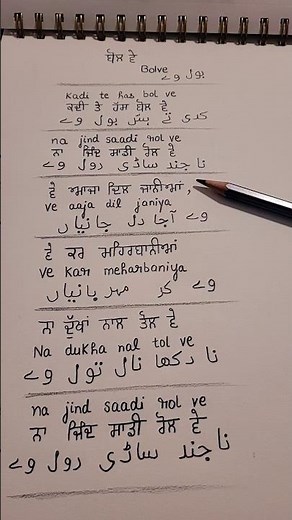 ਬੋਲ ਵੇ
Bolve بول وے
Kadi te has bol ve
ਕਦੀ ਤੇ ਹੱਸ ਬੋਲ ਵੇ
کدی تے ہس بول وے
na jind saadi rol ve
ਨਾ ਜਿੰਦ ਸਾਡੀ ਰੋਲ ਵੇ
نا جند ساڈی رول وے
ਵੇ ਆਜਾ ਦਿਲ ਜਾਨੀਆਂ,
ve aaja dil janiya
وے آجا دل جانیاں
ਵੇ ਕਰ ਮਹਿਰਬਾਨੀਆਂ
ve kar meharbaniya
وے کر مہربانیاں
ਨਾ ਦੁੱਖਾਂ ਨਾਲ ਤੋਲ ਵੇ
Na dukha nal tol ve
نا دکھا نال تول وے
na jind saadi rol ve
ਨਾ ਜਿੰਦ ਸਾਡੀ ਰੋਲ ਵੇ
نا جند ساڑی رول وے